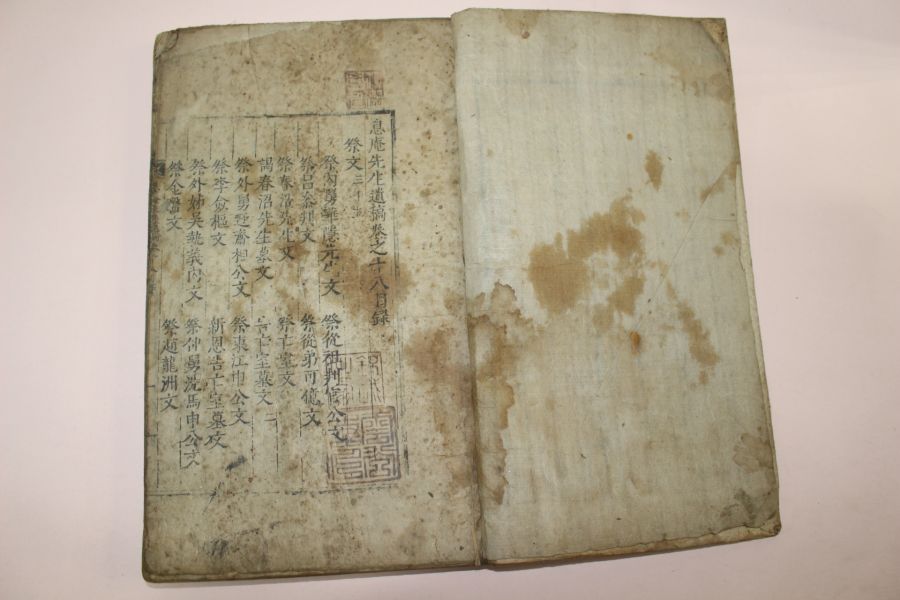 息庵先生遺稿卷之十八目録
祭文
祭先生文 祭從祖判官公文
祭昌泰判文 祭從弟可億文
祭春沼先生文 祭亡室文
謁春沼先生墓文 告亡室墓文
祭外舅迃齋相公文 祭東江申公文
祭李僉樞文 新恩告亡室墓文
祭外姊吳執義內文 祭仲舅洗馬申公文
祭文 祭趙龍洲文